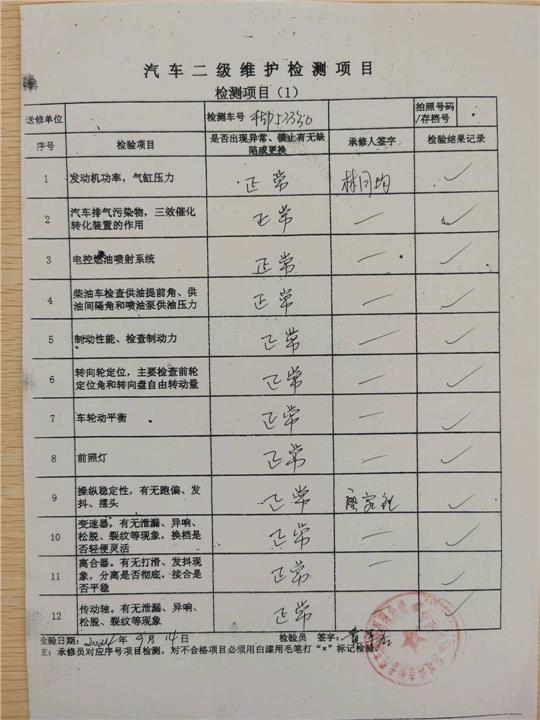 汽车二级维护检测项目
检测项目（1）
送修单位 检测车号 拍照号码/存档号
序号 检验项目 是否出现异常、锁止有无缺陷或更换 承修人签字 检验结果记录
1 发动机功率，气缸压力 正常 ✓
2 汽车排气污染物，三效催化转化装置的作用 正常 — ✓
3 电控燃油喷射系统 正常 — ✓
4 柴油车检查供油提前角、供油间隔角和喷油泵供油压力 正常 — ✓
5 制动性能、检查制动力 正常 — ✓
6 转向轮定位，主要检查前轮定位角和转向盘自由转动量 正常 — ✓
7 车轮动平衡 正常 — ✓
8 前照灯 正常 — ✓
9 操纵稳定性，有无跑偏、发抖、摆头 正常 ✓
10 变速器，有无泄漏、异响、松脱、裂纹等现象，换档是否轻便灵活 正常 — ✓
11 离合器。有无打滑、发抖现象，分离是否彻底，接合是否平稳 正常 — ✓
12 传动轴。有无泄漏、异响、松脱、裂纹等现象 正常 ✓
验日期：2024年9月14日 检验员 签字：
主：承修员对应序号项目检测，对不合格项目必须用白漆用毛笔打“×”标记检验